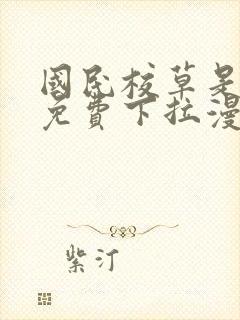 國民校草是
免費下拉漫
紫汀